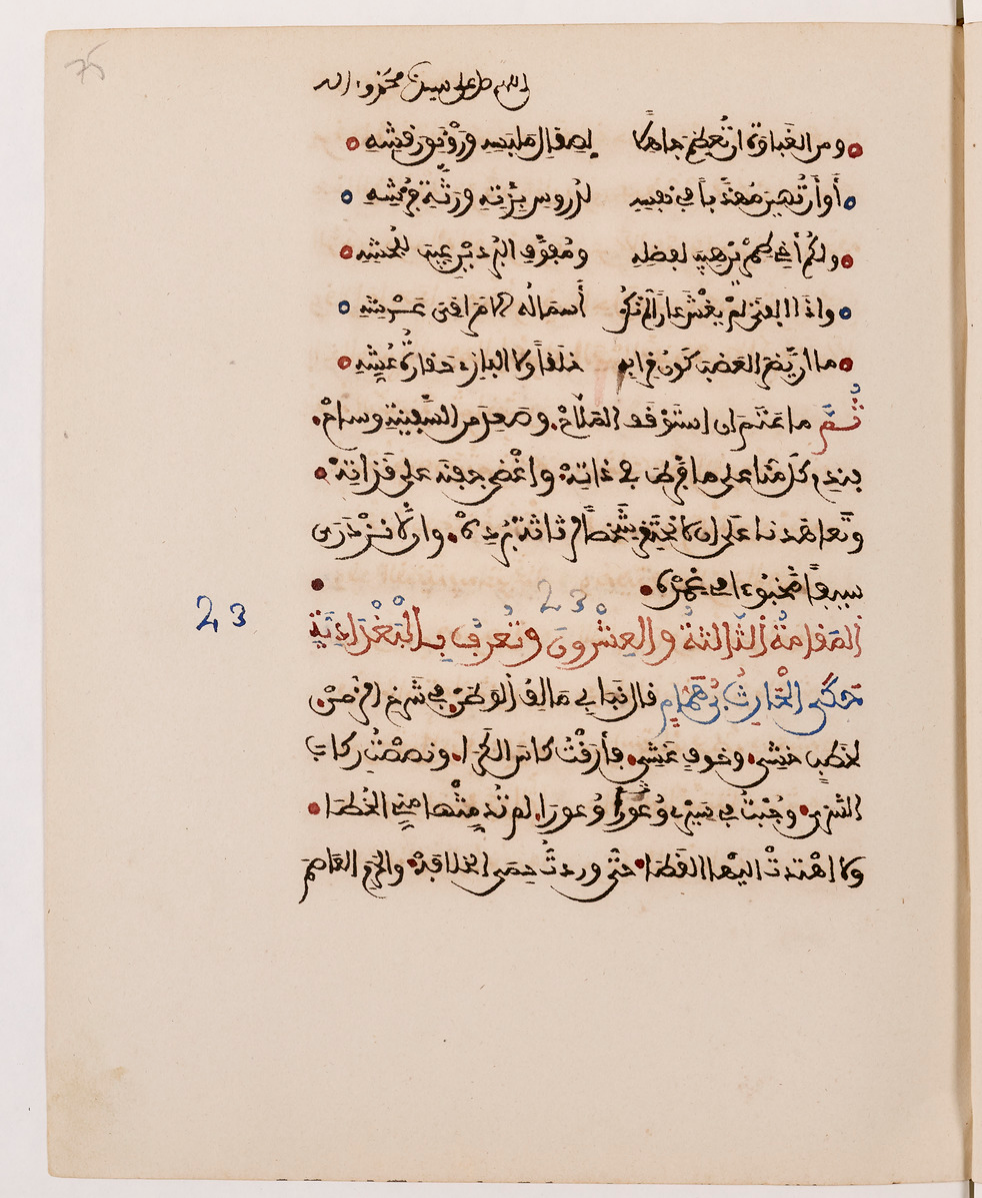 75
اللهم صل على سيدنا محمد وءاله
ومن الغباوة ان تُعظِّم جاهلا لصقال ملبسه ورَوْنَق رقشه
أوأن تُهين مُهذَّباً في نفسه لدُروس بِزّته ورَثّة فُرُشه
ولكم أخي طِمْرَيْن هِيبَ لفضله ومُفَوَّف البُردَيْن عِيبَ لفُحشه
واذا الفتى لم يغْشَ عاراً لم تكن أسماله الا مراقي عَرْشه
ما ان يَضرّ العضبَ كَوْنُ قرابه خلَقاً ولا البازي حقارة عُشّه
ثُمَّ ما عَتَم ان استَوْقف الملّاحْ. وصعد من السَّفينة وساحْ.
فندم كل منّا على ما فرط في ذاتهْ. واغْضى جفنه على قَذاتهْ.
وتعاهدنا على ان لا نحتقر شخصاً لرثاثة بُردهْ. وان لا نزْدَرِي
سيفاً مخبوءا في غِمْدهْ.
23
المقامة الثالثة والعِشْرُون وتُعرف بالبَغْداذيّة
23
حَكَى الحارثُ بْن همّام قال نَبا بي مَالفُ الوطنْ. في شَرْخ الزمنْ.
لخطبٍ خُشي. وخوفٍ غَشي. فأرَقْتُ كاس الكرَى. ونصصْتُ ركاب
السُّرى. وجُبْتُ في سَيْري وُعُوراً وُعورا. لم تُدمّثْها منّي الخُطا.
ولا اهْتدتْ اليْها القَطا. حتّى وردتُّ حِمَى الخلافهْ. والحرَم العاصم